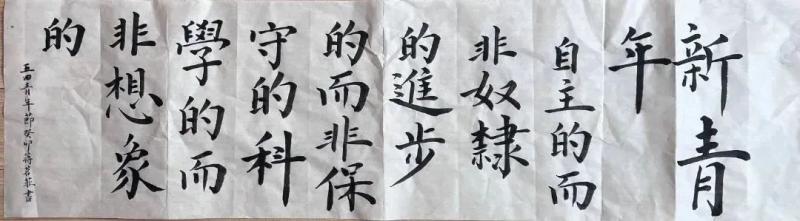 新青
年
自主的而
非奴隸
的進步
的而非保
守的科
學的而
非想象
的
五四青年節癸卯